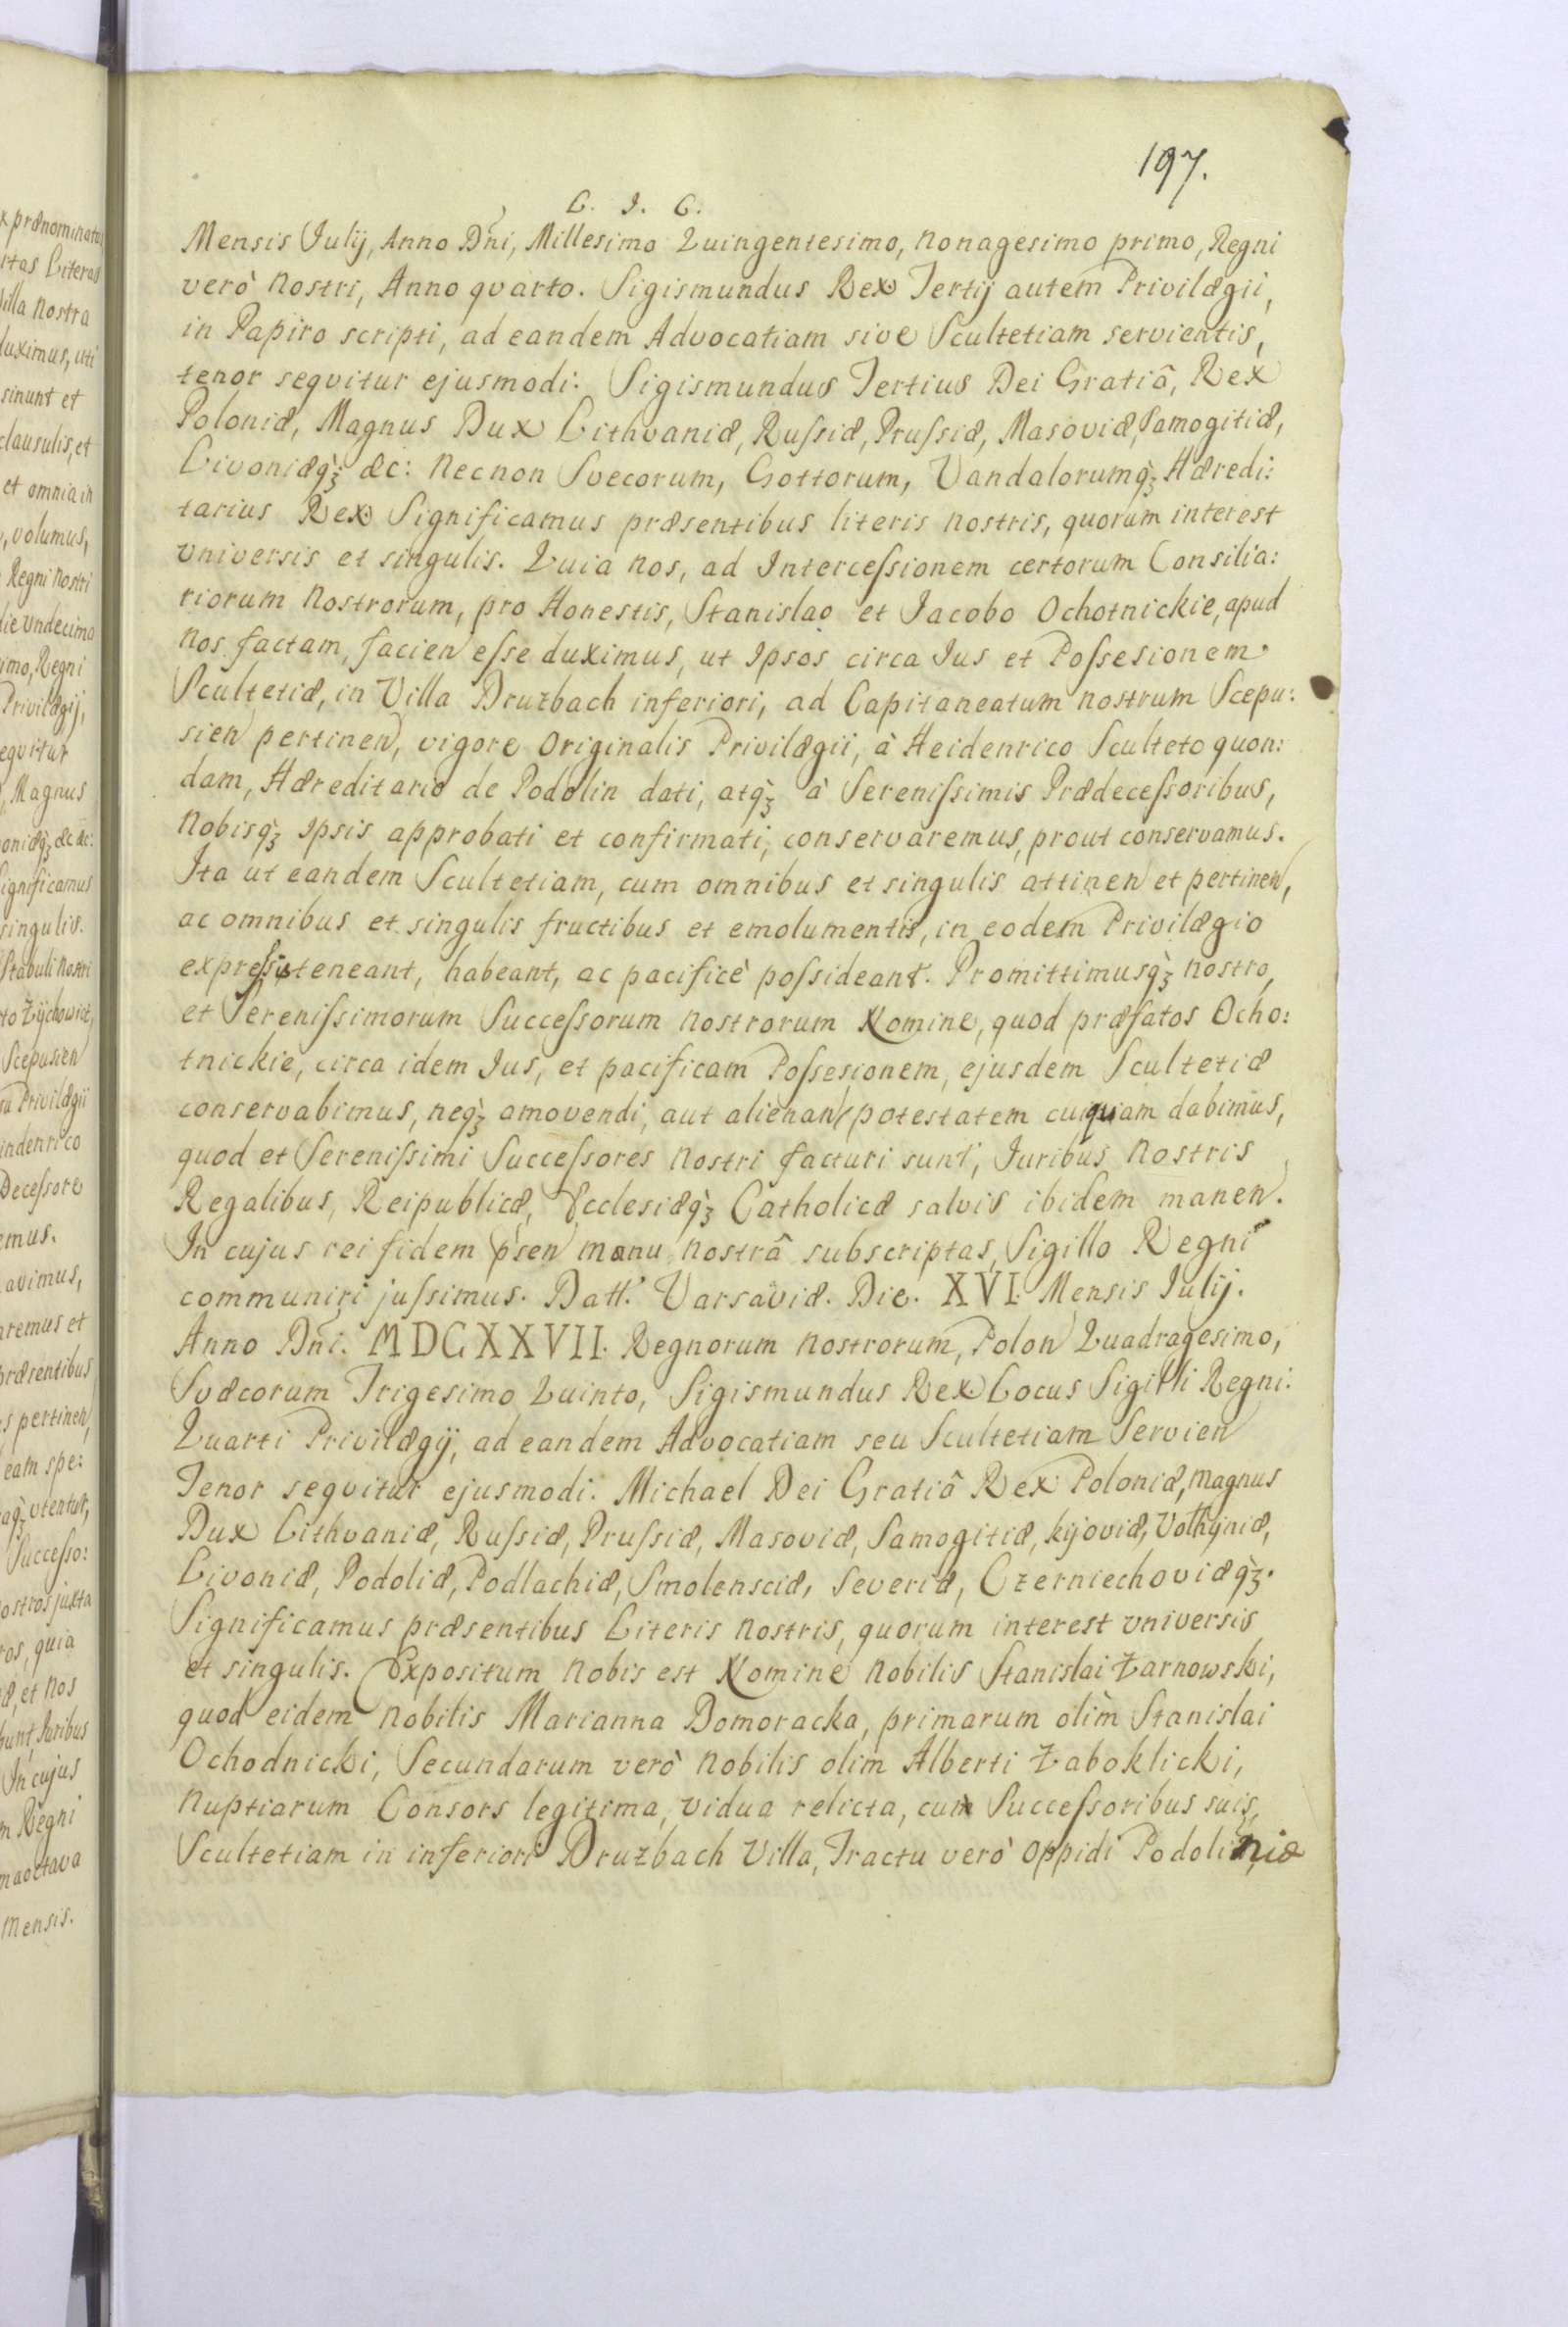 197.
L. J. C.
Mensis Julij, Anno Dn̄i, Millesimo Quingentesimo, nonagesimo primo, Regni
verò nostri, Anno qvarto. Sigismundus Rex Tertij autem Privilægii,
in Papiro scripti, ad eandem Advocatiam sive Scultetiam servientis,
tenor seqvitur ejusmodi: Sigismundus Tertius Dei Gratiâ, Rex
Poloniæ, Magnus Dux Lithvaniæ, Rufsiæ, Prufsiæ, Masoviæ, Samogitiæ,
Livoniæq̀ȝ &c: necnon Svecorum, Gottorum, Vandalorumq̀ȝ Hæredi:
tarius Rex Significamus præsentibus literis nostris, quorum interest
vniversis et singulis. Quia nos, ad Intercefsionem certorum Consilia:
riorum nostrorum, pro Honestis, Stanislao et Jacobo Ochotnickie, apud
nos factam, facien efse duximus, ut Ipsos circa Jus et Pofsesionem
Scultetiæ, in Villa Druzbach inferiori, ad Capitaneatum nostrum Scepu:
sien pertinen, vigore Originalis Privilægii, à Heidenrico Sculteto quon:
dam, Hæreditario de Podolin dati, atq̀ȝ à Serenifsimis Prædecefsoribus,
nobisq̀ȝ Ipsis approbati et confirmati, conservaremus, prout conservamus.
Ita ut eandem Scultetiam, cum omnibus et singulis attinen et pertinen,
ac omnibus et singulis fructibus et emolumentis, in eodem Privilægio
exprefsis teneant, habeant, ac pacificè pofsideant. Promittimusq̀ȝ nostro,
et Serenifsimorum Succefsorum nostrorum Nomine, quod præfatos Ocho:
tnickie, circa idem Jus, et pacificam Pofsesionem, ejusdem Scultetiæ
conservabimus, neq̀ȝ amovendi, aut alienan potestatem cuiquam dabimus,
quod et Serenifsimi Succefsores nostri facturi sunt, Juribus nostris
Regalibus, Reipublicæ, Ecclesiæq̀ȝ Catholicæ salvis ibidem manen.
In cujus rei fidem p̄sen manu nostrâ subscriptas, Sigillo Regni
communiri jufsimus. Datt. Varsaviæ. Die. XVI. Mensis Julij.
Anno Dn̄i. MDCXXVII. Regnorum nostrorum, Polon Quadragesimo,
Svæcorum Trigesimo Quinto, Sigismundus Rex Locus Sigilli Regni.
Quarti Privilægij, ad eandem Advocatiam seu Scultetiam Servien
Tenor seqvitur ejusmodi. Michael Dei Gratiâ Rex Poloniæ, magnus
Dux Lithvaniæ, Rufsiæ, Prufsiæ, Masoviæ, Samogitiæ, kijoviæ, Volhyniæ,
Livoniæ, Podoliæ, Podlachiæ, Smolensciæ, Severiæ, Czerniechoviæq̀ȝ.
Significamus præsentibus Literis nostris, quorum interest vniversis
et singulis. Expositum nobis est Nomine nobilis Stanislai Żarnowski,
quod eidem nobilis Marianna Domoracka, primarum olim Stanislai
Ochodnicki, Secundarum verò nobilis olim Alberti Żaboklicki,
nuptiarum Consors legitima, vidua relicta, cum Succefsoribus suis,
Scultetiam in inferiori Druzbach Villa, Tractu verò oppidi Podoliniæ